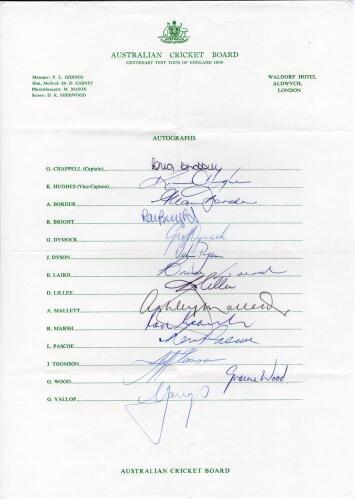 AUSTRALIAN CRICKET BOARD
CENTENARY TEST TOUR OF ENGLAND 1980
Manager: P. L. RIDINGS
Hon. Medical: Dr. D. CARNEY
Physiotherapist: M. MASON
Scorer: D. K. SHERWOOD
WALDORF HOTEL
ALDWYCH,
LONDON
AUTOGRAPHS
G. CHAPPELL (Captain) Greg Chappell
K. HUGHES (Vice-Captain) Kim Hughes
A. BORDER Allan Border
R. BRIGHT Ray Bright
G. DYMOCK G Dymock
J. DYSON John Dyson
B. LAIRD Bruce Laird
D. LILLEE D Lillee
A. MALLETT Ashley Mallett
R. MARSH Rod Marsh
L. PASCOE Len Pascoe
J. THOMSON J Thomson
G. WOOD Graeme Wood
G. YALLOP
AUSTRALIAN CRICKET BOARD